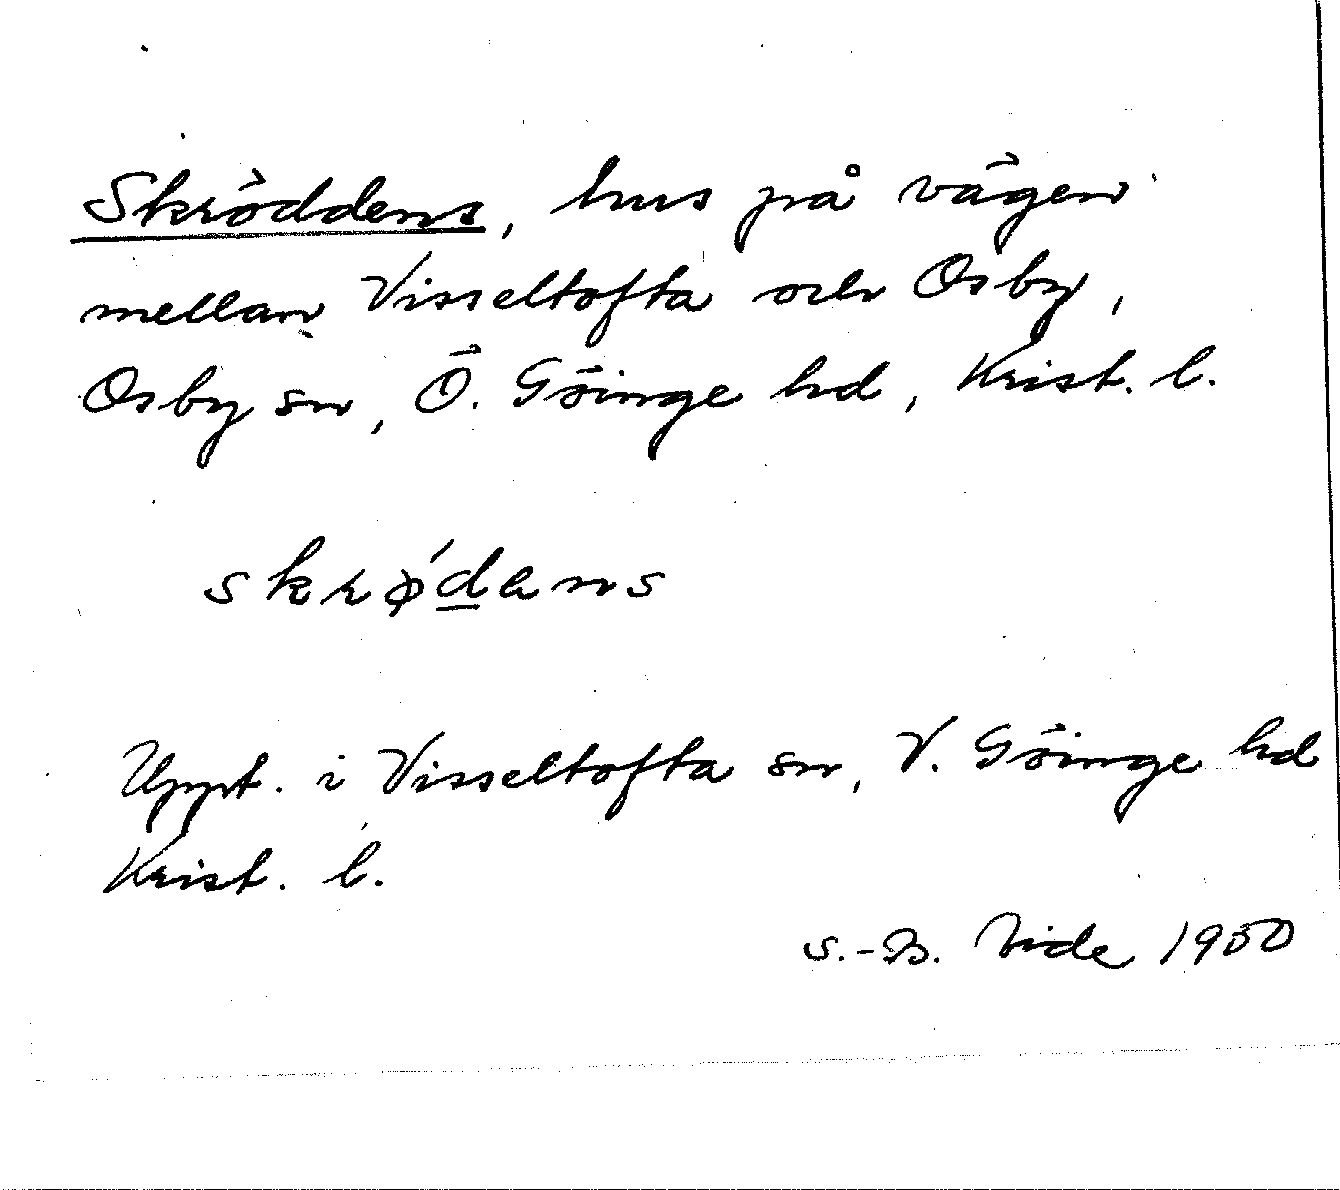 Skröddens, hus på vägen
mellan Visseltofta och Osby,
Osby sn, Ö. Göinge hd, Krist. l.
skrø´d̲ans
Uppt. i Visseltofta sn, V. Göinge hd
Krist. l.
S.-B. Vide 1950